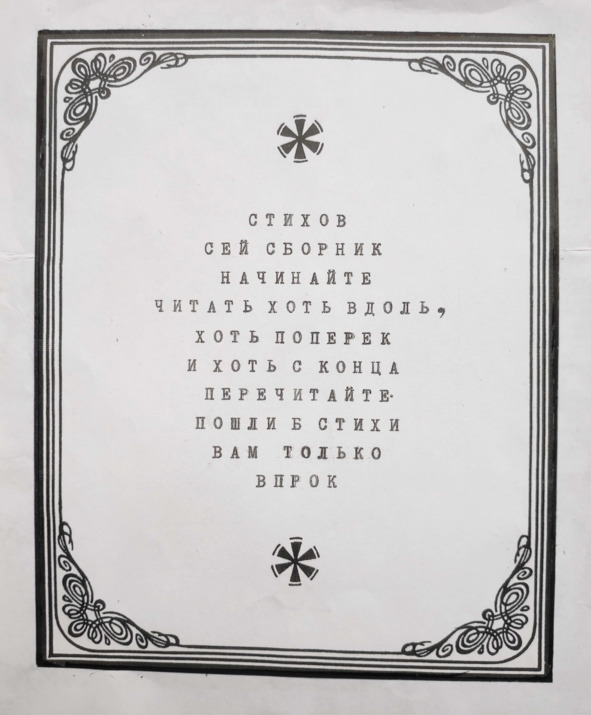 СТИХОВ
СЕЙ СБОРНИК
НАЧИНАЙТЕ
ЧИТАТЬ ХОТЬ ВДОЛЬ,
ХОТЬ ПОПЕРЕК
И ХОТЬ С КОНЦА
ПЕРЕЧИТАЙТЕ-
ПОШЛИ Б СТИХИ
ВАМ ТОЛЬКО
ВПРОК